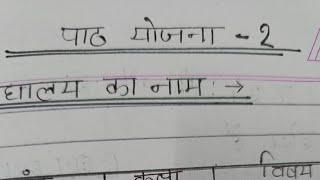 पाठ योजना - 2
द्यालय का नाम : →
कक्षा | विषय